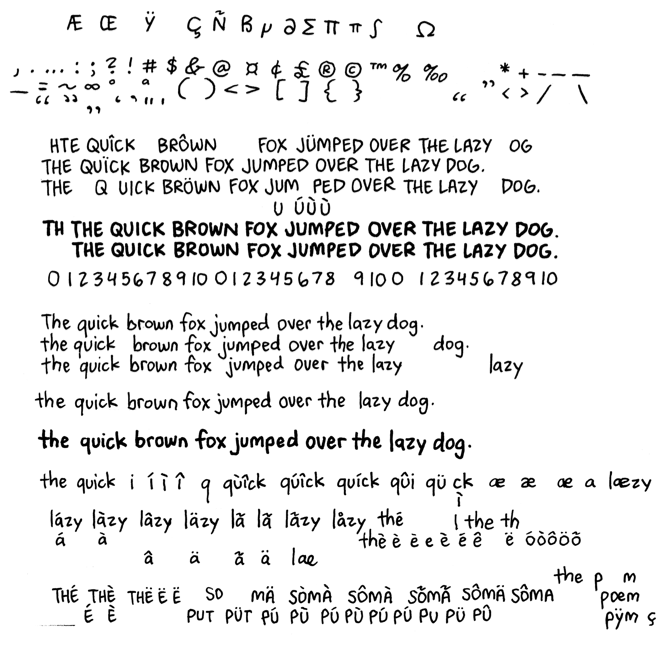 Æ Œ Ÿ Ç Ñ ß µ ∂ Σ Π π ∫ Ω
, . ... : ; ? ! # $ & @ ¤ ¢ £ ® © ™ % ‰ " * + - – —
— “ = ” ~ ∞ ° ( ) < > [ ] { } “ < > / \
„
HTE QUÎCK BRÔWN FOX JÜMPED OVER THE LAZY OG
THE QUÏCK BROWN FOX JUMPED OVER THE LAZY DOG.
THE Q UICK BRÖWN FOX JUM PED OVER THE LAZY DOG.
U ÚÙÙ
TH THE QUICK BROWN FOX JUMPED OVER THE LAZY DOG.
THE QUICK BROWN FOX JUMPED OVER THE LAZY DOG.
0 1 2 3 4 5 6 7 8 9 10 0 1 2 3 4 5 6 7 8 9 10 0 1 2 3 4 5 6 7 8 9 10
The quick brown fox jumped over the lazy dog.
the quick brown fox jumped over the lazy dog.
the quick brown fox jumped over the lazy lazy
the quick brown fox jumped over the lazy dog.
the quick brown fox jumped over the lazy dog.
the quick i í ì î q qùîck qúîck quíck qûi qü ck æ æ æ a læzy
ì
lázy làzy lâzy läzy lã lã lãzy låzy thé l the th
á à thè è è e è é ê ë óòôöõ
â ä ã ä lae
the p m
THÉ THÈ THË Ë Ë SO MÄ SÒMÀ SÔMÀ SÕMÃ SÔMÄ SÔMA poem
É È PUT PÜT PÚ PÙ PÚ PÙ PÚ PÚ PU PÜ PÛ pÿm ç